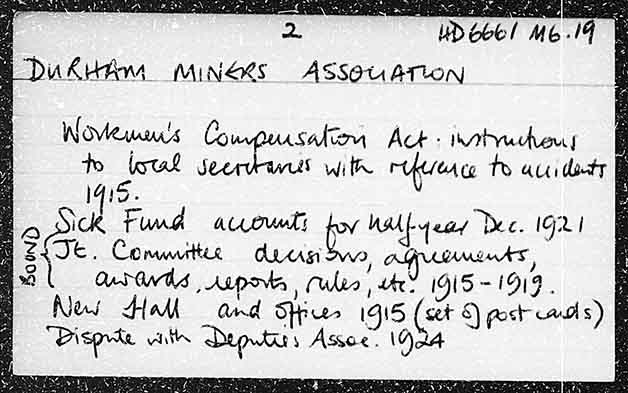 2 HD6661 M6.19
DURHAM MINERS ASSOCIATION
Workmen's Compensation Act. instructions
to local secretaries with reference to accidents
1915.
Sick Fund accounts for half-year Dec. 1921
BOUND { Jt. Committee decisions, agreements,
awards, reports, rules, etc. 1915-1919.
New Hall and offices 1915 (set of post cards)
Dispute with Deputies Assoc. 1924